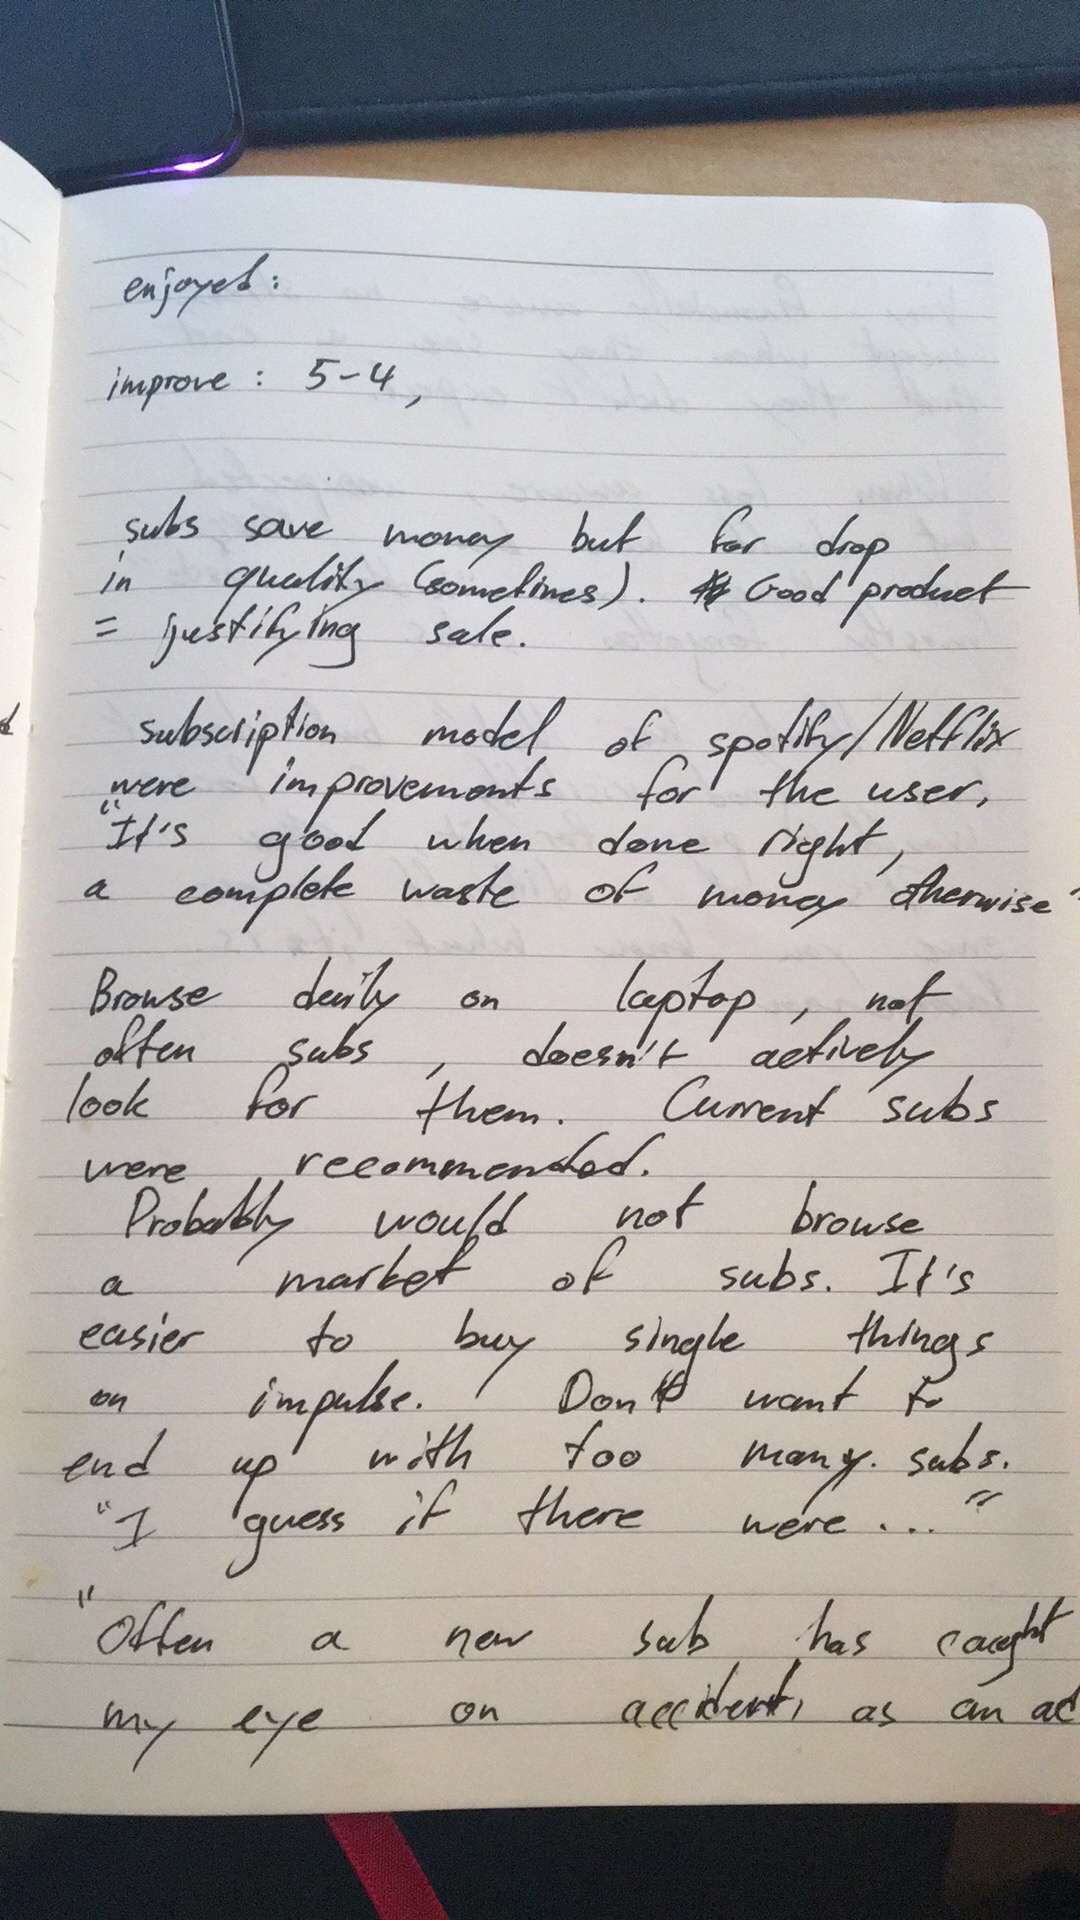 enjoyed:
improve: 5-4,
subs save money but for drop
in quality (sometimes). Good product
= justifying sale.
subscription model of spotify/Netflix
were improvements for the user,
"It's good when done right,
a complete waste of money otherwise"
Browse daily on laptop, not
often subs, doesn't actively
look for them. Current subs
were recommended.
Probably would not browse
a market of subs. It's
easier to buy single things
on impulse. Don't want to
end up with too many subs.
"I guess if there were..."
"Often a new sub has caught
my eye on accident, as an ad